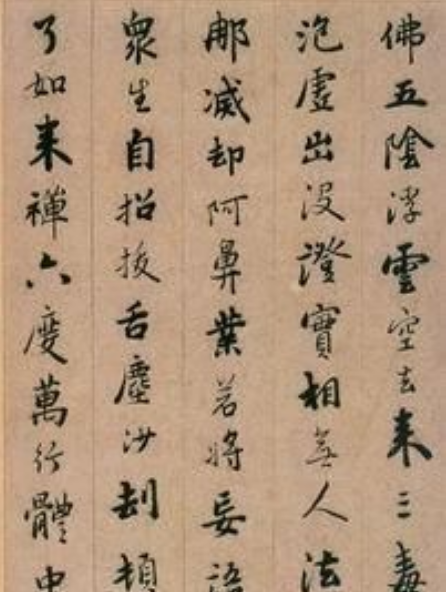 佛五陰浮雲空去来三毒
泡虛出沒證實相無人法
那滅却阿鼻業若將妄語
衆生自招拔舌塵沙刼頓
了如来禪六度萬行體中